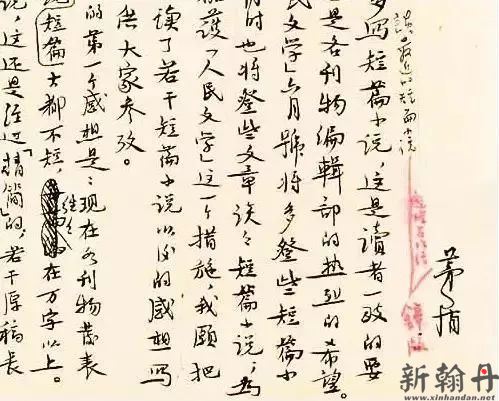 茅盾
談最近的短篇小说
多寫短篇小说，这是讀者一致的要
是各刊物編輯部的热烈的希望。
民文学」六月號將多登些短篇小
时也將登些文章谈谈短篇小说，为
護「人民文学」这一个措施，我願把
读了若干短篇小说以后的感想寫
供大家参攷。
的第一个感想是：现在各刊物發表
短篇大都不短，往往在万字以上。
说，这还是经过「精简」的，若干原稿長
新翰丹
www.xinhandan.net